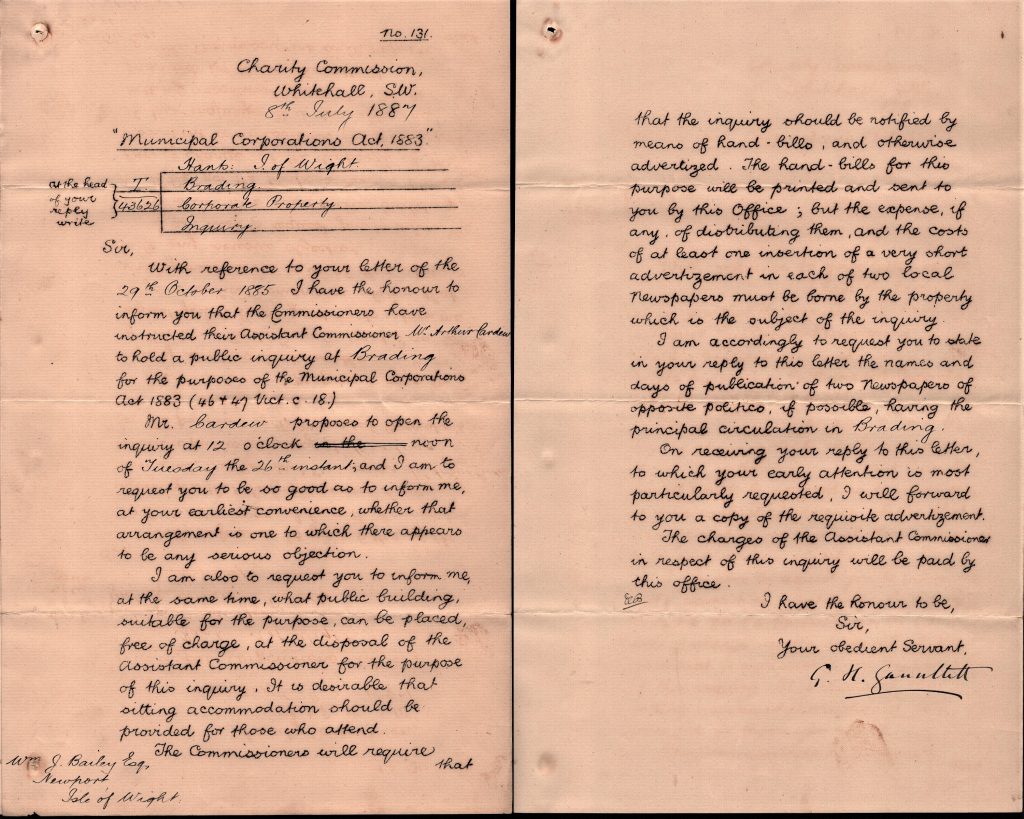 No. 131.
Charity Commission,
Whitehall, S.W.
8th July 1887
"Municipal Corporations Act, 1883"
Hants: I. of Wight
at the head of your reply write
T
43626
Brading.
Corporate Property.
Inquiry.
Sir,
With reference to your letter of the
29th October 1885 I have the honour to
inform you that the Commissioners have
instructed their Assistant Commissioner Mr Arthur Cardew
to hold a public inquiry at Brading
for the purposes of the Municipal Corporations
Act 1883 (46 & 47 Vict. c. 18.)
Mr. Cardew proposes to open the
inquiry at 12 o'clock in the noon
of Tuesday the 26th instant; and I am to
request you to be so good as to inform me,
at your earliest convenience, whether that
arrangement is one to which there appears
to be any serious objection.
I am also to request you to inform me,
at the same time, what public building,
suitable for the purpose, can be placed,
free of charge, at the disposal of the
Assistant Commissioner for the purpose
of this inquiry. It is desirable that
sitting accommodation should be
provided for those who attend.
The Commissioners will require
that
Wm J. Bailey Esq,
Newport
Isle of Wight.
that the inquiry should be notified by
means of hand-bills, and otherwise
advertized. The hand-bills for this
purpose will be printed and sent to
you by this Office; but the expense, if
any, of distributing them, and the costs
of at least one insertion of a very short
advertizement in each of two local
Newspapers must be borne by the property
which is the subject of the inquiry.
I am accordingly to request you to state
in your reply to this letter the names and
days of publication of two Newspapers of
opposite politics, if possible, having the
principal circulation in Brading.
On receiving your reply to this letter,
to which your early attention is most
particularly requested, I will forward
to you a copy of the requisite advertizement.
The charges of the Assistant Commissioner
in respect of this inquiry will be paid by
this office.
I have the honour to be,
Sir,
Your obedient Servant,
G. H. Gauntlett